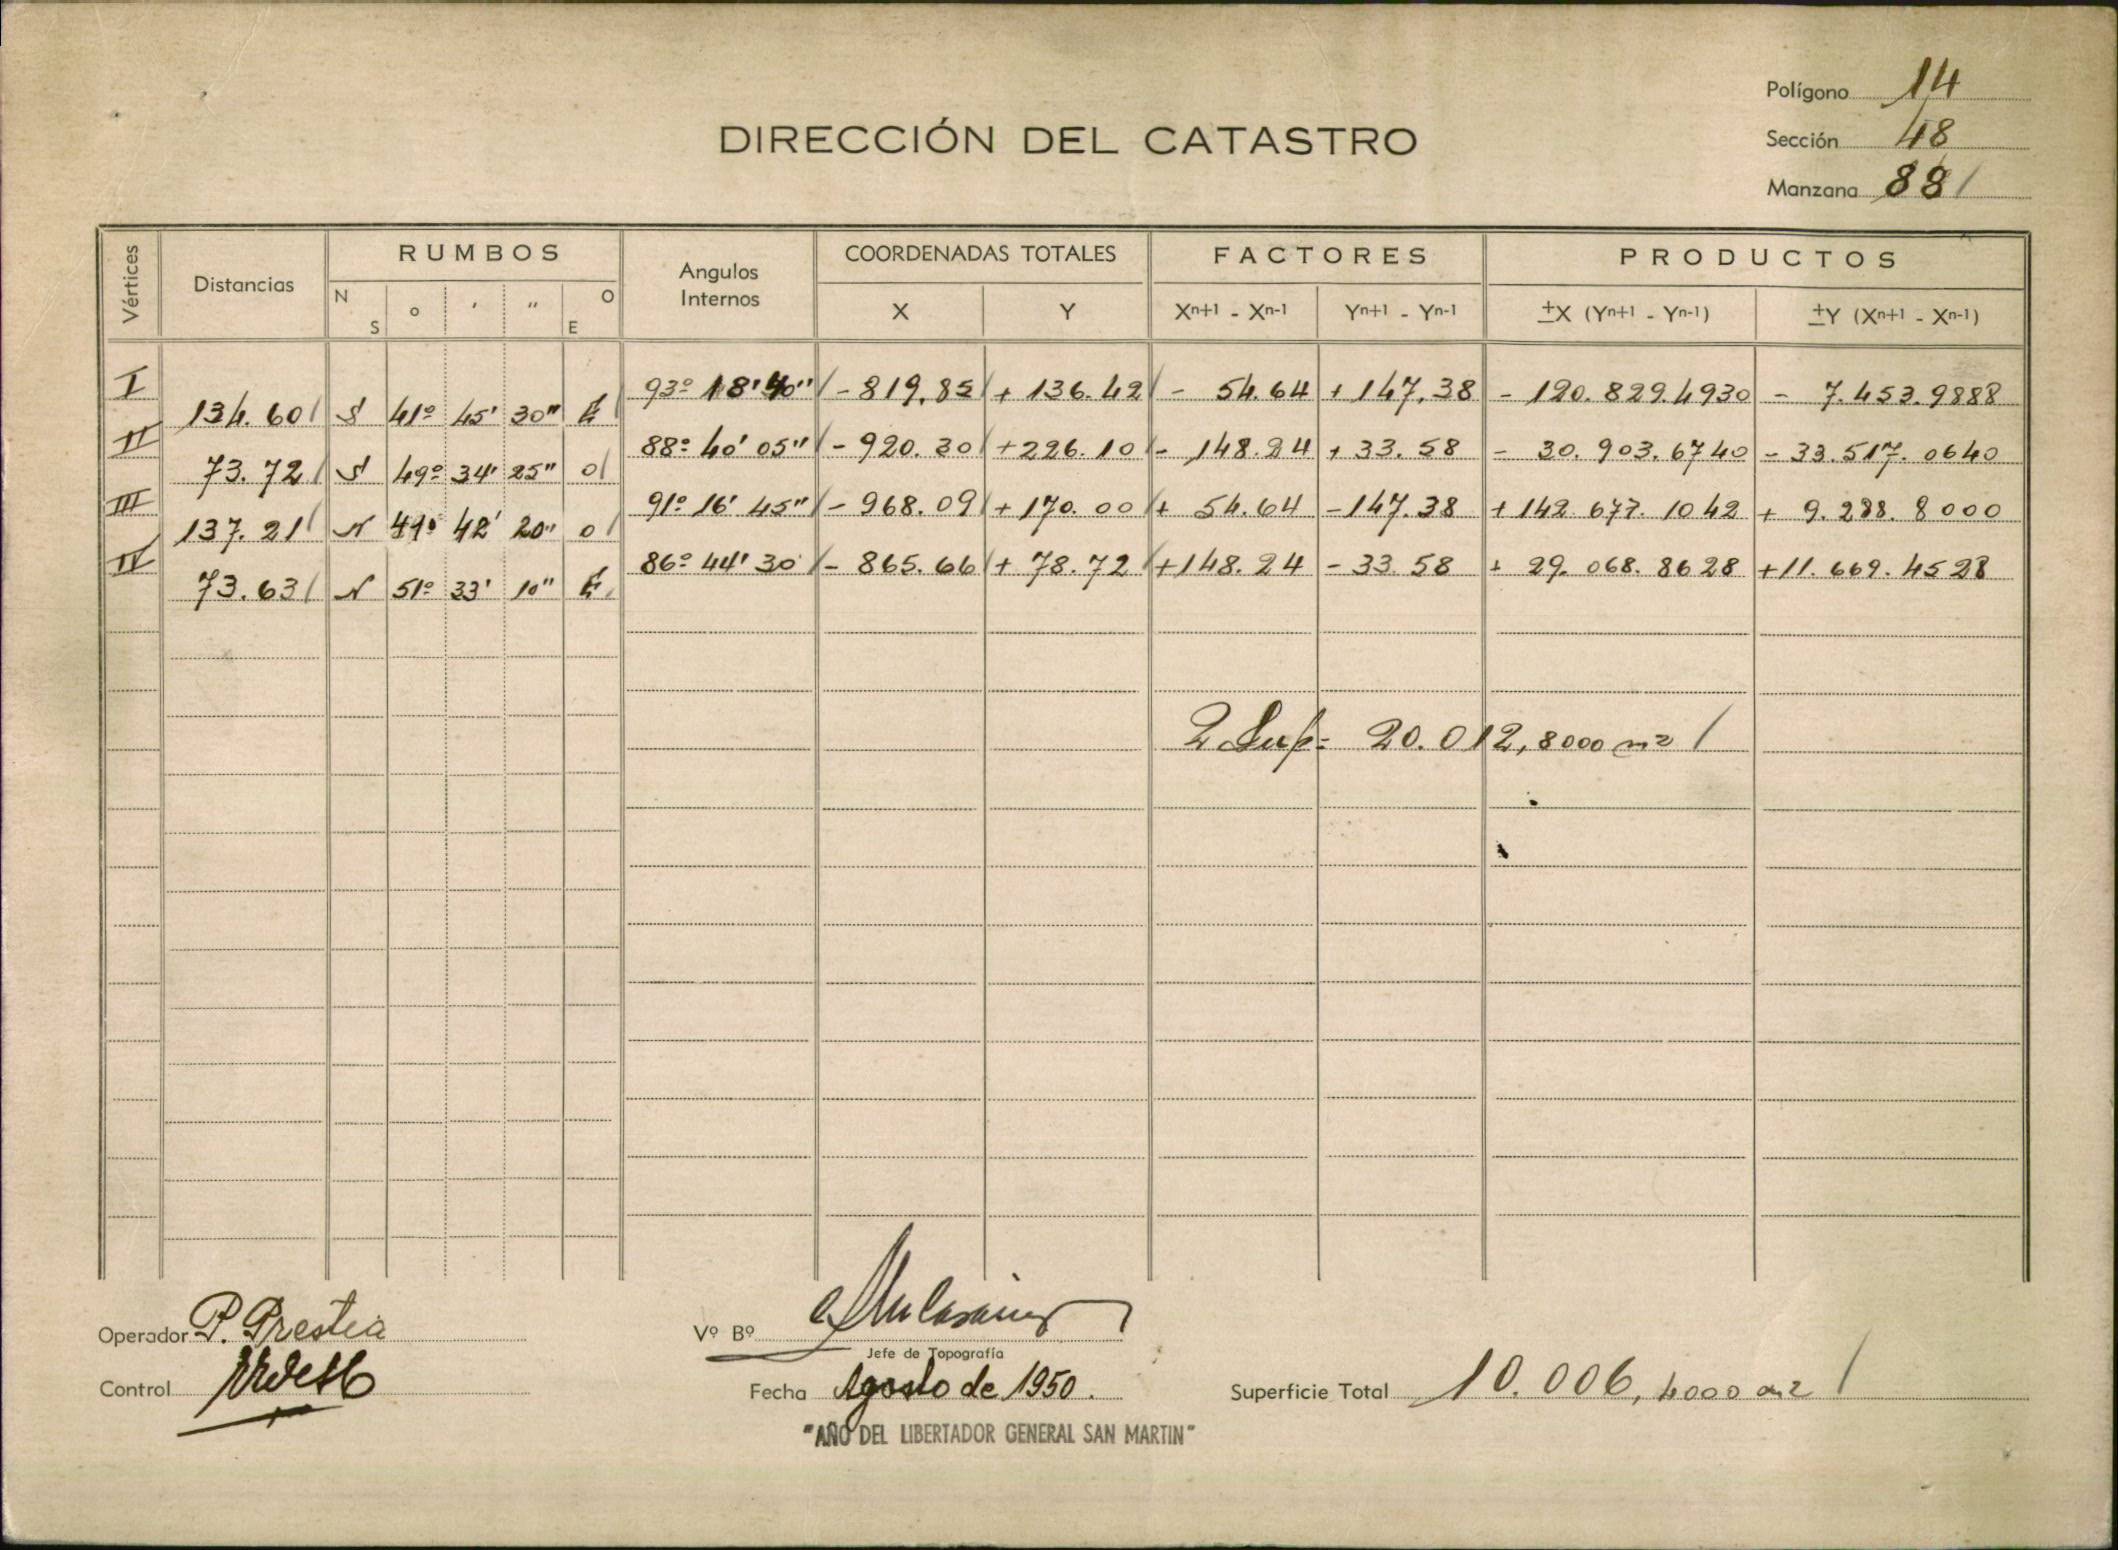 Polígono 14
DIRECCIÓN DEL CATASTRO
Sección 48
Manzana 88
Vértices Distancias RUMBOS Angulos Internos COORDENADAS TOTALES FACTORES PRODUCTOS
N S ° ' " O E X Y Xn+1 - Xn-1 Yn+1 - Yn-1 ±X (Yn+1 - Yn-1) ±Y (Xn+1 - Xn-1)
I 93º 18' 40" - 819.85 + 136.42 - 54.64 + 147.38 - 120.829.4930 - 7.453.9888
134.60 S 41º 45' 30" E
II 88º 40' 05" - 920.30 + 226.10 - 148.24 + 33.58 - 30.903.6740 - 33.517.0640
73.72 S 49º 34' 25" O
III 91º 16' 45" - 968.09 + 170.00 + 54.64 - 147.38 + 142.677.1042 + 9.288.8000
137.21 N 41º 42' 20" O
IV 86º 44' 30 - 865.66 + 78.72 + 148.24 - 33.58 + 29.068.8628 + 11.669.4528
73.63 N 51º 33' 10" E
2 Sup = 20.012,8000 m2
Operador P. Prestia
Vº Bº
Jefe de Topografía
Control
Fecha Agosto de 1950.
Superficie Total 10.006,4000 m2
"AÑO DEL LIBERTADOR GENERAL SAN MARTIN"